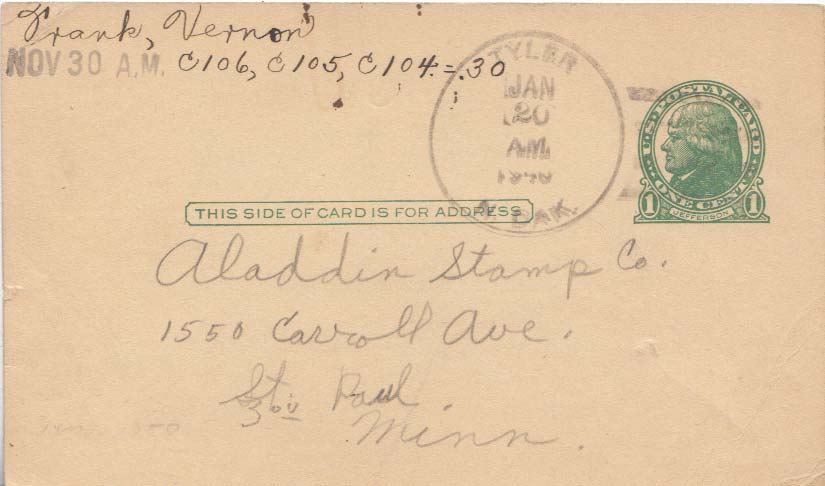 Frank, Vernon
NOV 30 A.M. C106, C105, C104 = .30
TYLER
JAN
20
A.M.
N. DAK.
U.S. POSTAL CARD
ONE CENT
1 JEFFERSON 1
THIS SIDE OF CARD IS FOR ADDRESS
Aladdin Stamp Co.
1550 Carroll Ave.
St. Paul
Minn.